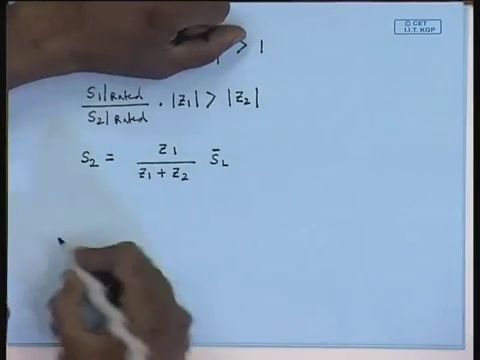 © CET
I.I.T. KGP
> 1
S₁|Rated / S₂|Rated · |Z₁| > |Z₂|
S₂ = Z₁ / (Z₁ + Z₂) S̄L